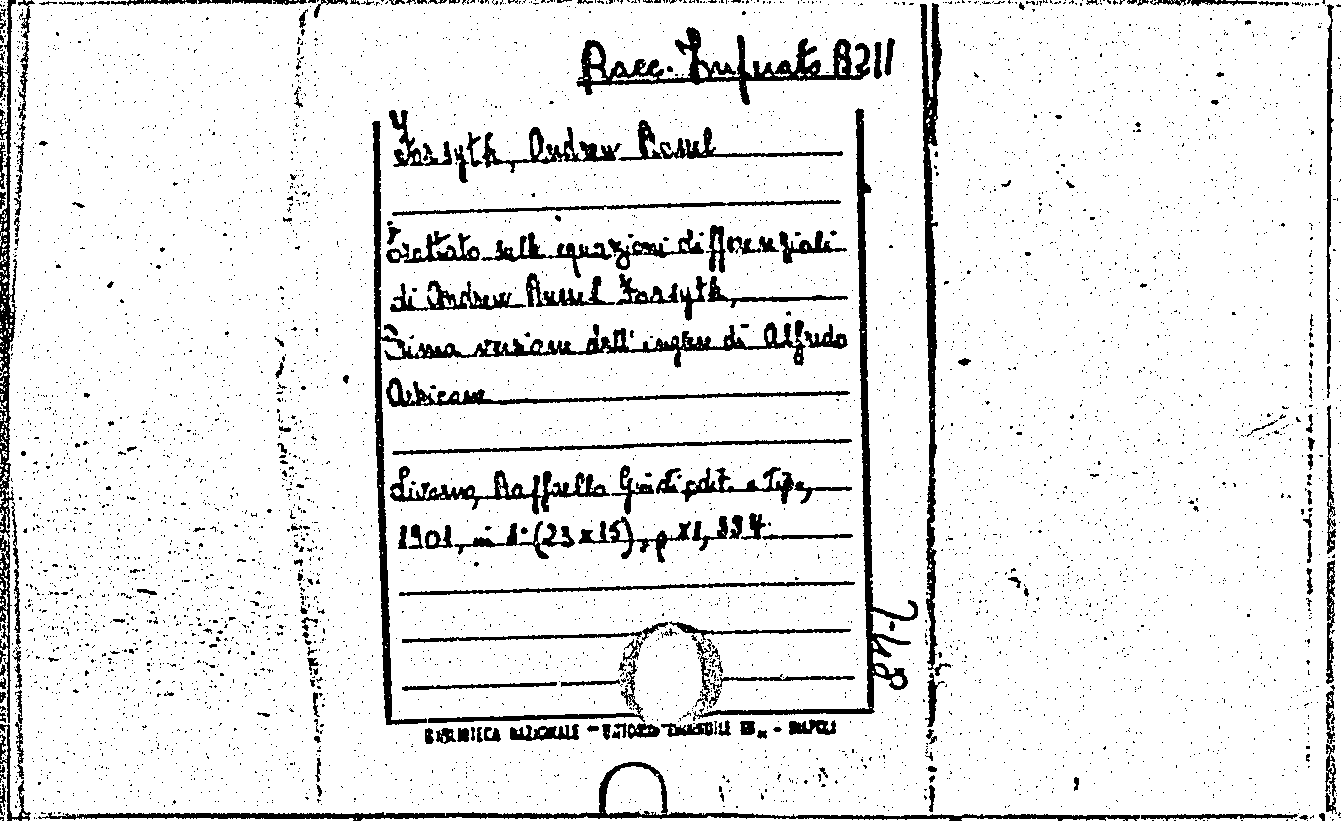 Racc. Imfruato B211
Forsyth, Andrew Russel
Trattato sulle equazioni differenziali
di Andrew Russel Forsyth,
Prima versione dall'inglese di Alfredo
Arbicone
Livorno, Raffaello Giusti, edit. e Tip.,
1901, in 4° (23x15), p XI, 394.
BIBLIOTECA NAZIONALE "VITTORIO EMANUELE III" - NAPOLI